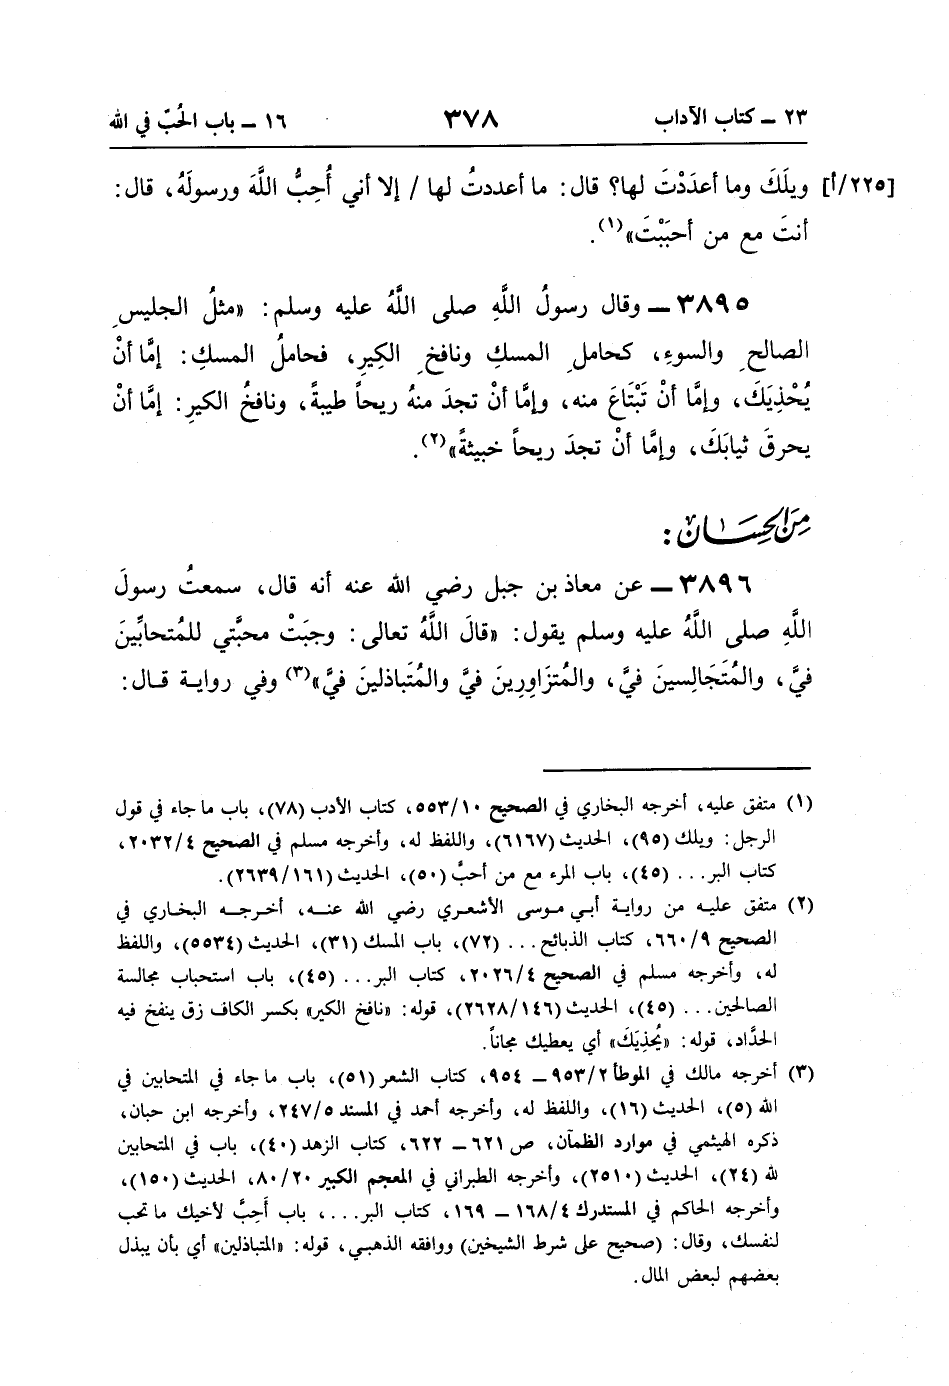 ٢٣ ــ كتاب الآداب ٣٧٨ ١٦ ــ باب الحُبّ في الله
[٢٢٥/أ] ويلَكَ وما أعدَدْتَ لها؟ قال: ما أعددتُ لها / إلا أني أُحِبُّ اللَّهَ ورسولَهُ، قال:
أنتَ مع من أحبَبْتَ»(١).
٣٨٩٥ ــ وقال رسولُ اللَّهِ صلى اللَّهُ عليه وسلم: «مثلُ الجليسِ
الصالحِ والسوءِ، كحاملِ المسكِ ونافخِ الكِيرِ، فحاملُ المسكِ: إمَّا أنْ
يُحْذِيَكَ، وإمَّا أنْ تَبْتَاعَ منه، وإمَّا أنْ تجدَ منهُ ريحاً طيبةً، ونافخُ الكيرِ: إمَّا أنْ
يحرقَ ثيابَكَ، وإمَّا أنْ تجدَ ريحاً خبيثةً»(٢).
مِنَ الحِسَان:
٣٨٩٦ ــ عن معاذ بن جبل رضي الله عنه أنه قال، سمعتُ رسولَ
اللَّهِ صلى اللَّهُ عليه وسلم يقول: «قالَ اللَّهُ تعالى: وجبَتْ محبَّتي للمُتحابِّينَ
فيَّ، والمُتَجَالِسينَ فيَّ، والمُتزَاوِرِينَ فيَّ والمُتَباذلينَ فيَّ»(٣) وفي رواية قال:
(١) متفق عليه، أخرجه البخاري في الصحيح ٥٥٣/١٠، كتاب الأدب (٧٨)، باب ما جاء في قول
الرجل: ويلك (٩٥)، الحديث (٦١٦٧)، واللفظ له، وأخرجه مسلم في الصحيح ٢٠٣٢/٤،
كتاب البر... (٤٥)، باب المرء مع من أحبَّ (٥٠)، الحديث (٢٦٣٩/١٦١).
(٢) متفق عليه من رواية أبي موسى الأشعري رضي الله عنه، أخرجه البخاري في
الصحيح ٦٦٠/٩، كتاب الذبائح... (٧٢)، باب المسك (٣١)، الحديث (٥٥٣٤)، واللفظ
له، وأخرجه مسلم في الصحيح ٢٠٢٦/٤، كتاب البر... (٤٥)، باب استحباب مجالسة
الصالحين... (٤٥)، الحديث (٢٦٢٨/١٤٦)، قوله: «نافخ الكير» بكسر الكاف زق ينفخ فيه
الحدَّاد، قوله: «يُحذِيَكَ» أي يعطيك مجاناً.
(٣) أخرجه مالك في الموطأ ٩٥٣/٢ ــ ٩٥٤، كتاب الشعر (٥١)، باب ما جاء في المتحابين في
الله (٥)، الحديث (١٦)، واللفظ له، وأخرجه أحمد في المسند ٢٤٧/٥، وأخرجه ابن حبان،
ذكره الهيثمي في موارد الظمآن، ص ٦٢١ ــ ٦٢٢، كتاب الزهد (٤٠)، باب في المتحابين
لله (٢٤)، الحديث (٢٥١٠)، وأخرجه الطبراني في المعجم الكبير ٨٠/٢٠، الحديث (١٥٠)،
وأخرجه الحاكم في المستدرك ١٦٨/٤ ــ ١٦٩، كتاب البر...، باب أَحِبَّ لأخيك ما تحب
لنفسك، وقال: (صحيح على شرط الشيخين) ووافقه الذهبي، قوله: «المتباذلين» أي بأن يبذل
بعضهم لبعض المال.